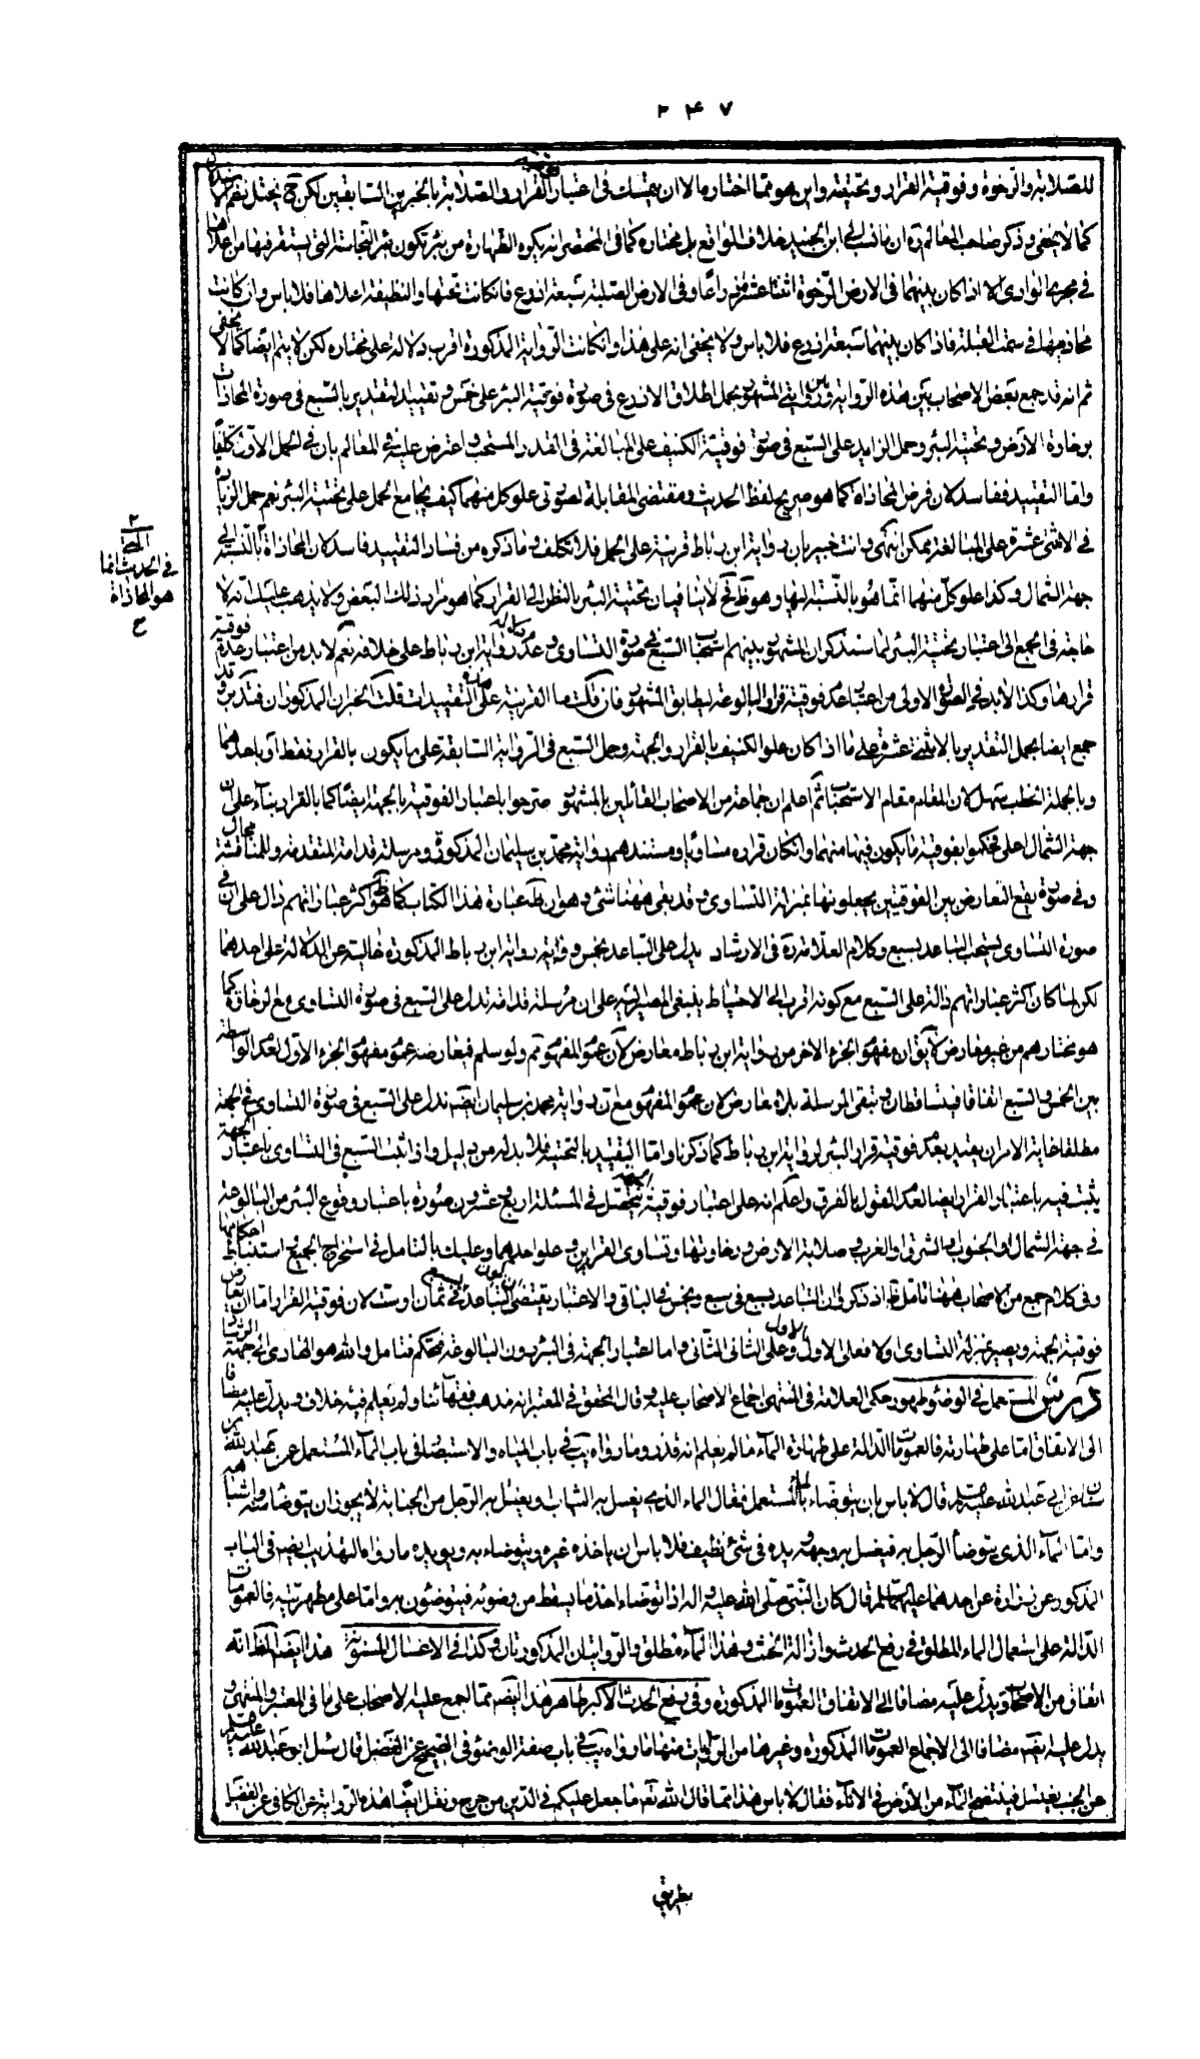 ۲۴۷
للصلابة والرخوة وفوقية القرار وتحتيته واين هو مما اختاره الا ان يتمسك فى اعتبار القرار فى الصلابة بالخبرين السابقين لكن ح يختل نعم
كما لا يخفى وذكر صاحب المعالم ره ان ما نسب الى ابن الجنيد خلاف الواقع بل مختاره كما فى المختصر انه يكره الطهارة من بئر تكون بئر النجاسة التى يستقر فيها من اعلاها
فى مجرى الوادى الا اذا كان بينهما فى الارض الرخوة اثنتا عشرة ذراعا وفى الارض الصلبة سبعة اذرع فان كانت تحتها والنظيفة اعلاها فلا باس وان كانت
محاذيها فى سمت القبلة فاذا كان بينهما سبعة اذرع فلا باس ولا يخفى انه على هذا وان كانت الرواية المذكورة اقرب دلالة على مختاره لكن لا يتم ايضا كما لا يخفى
ثم انه قد جمع بعض الاصحاب بين هذه الرواية ورواية المشهور بحمل اطلاق الاذرع فى صورة فوقية البئر على خمس وتقييد التقدير بالسبع فى صورة المحاذات
برخاوة الارض وتحتية البئر وحمل الزايد على السبع فى صورة فوقية الكنيف على المبالغة فى القدر المستحب واعترض عليه فى المعالم بان فى الحمل الاول تكلفا
واما التقييد ففاسد لان فرض المحاذاة كما هو صريح لفظ الحديث ومقتضى المقابلة لصورتى علو كل منهما كيف يجامع الحمل على تحتية البئر نعم حمل الزيادة
فى الاثنى عشرة على المبالغة ممكن انتهى وانت خبير بان رواية ابن رباط قرينة على الحمل فلا تكلف وما ذكره من فساد التقييد فاسد لان المحاذاة بالنسبة الى
جهة الشمال وكذا علو كل منهما انما هو بالنسبة اليها وهو ظ فح لا ينافيان تحتية البئر بالنظر الى القرار كما هو مراد ذلك البعض ولا يذهب عليك انه لا
حاجة فى الجمع الى اعتبار تحتية البئر لما سنذكر ان المشهور بينهم استحباب السبع فى صورة التساوى وعدم دلالة رواية ابن رباط على خلافه نعم لا بد من اعتبار عدم فوقية
قرارها وكذا لا بد فى الصورة الاولى من اعتبار عدم فوقية قرار البالوعة ليطابق المشهور فان قلت ما القرينة على هذه التقييدات قلت الخبران المذكوران فتدبر وقد
جمع ايضا بحمل التقدير بالاثنى عشرة على ما اذا كان علو الكنيف بالقرار والجهة وحمل السبع فى الرواية السابقة على ما يكون بالقرار فقط او باحدهما
وبالجملة الخطب سهل لان المقام مقام الاستحباب ثم اعلم ان جماعة من الاصحاب القائلين بالمشهور صرحوا باعتبار الفوقية بالجهة ايضا كما بالقرار بناء على ان
جهة الشمال اعلى فحكموا بفوقية ما يكون فيها منهما وان كان قراره مساويا ومستندهم رواية محمد بن سليمان المذكورة ومرسلة قدامة المتقدمة وللمناقشة مجال
وفى صورة يقع التعارض بين الفوقيتين يجعلونها بمنزلة التساوى وقد بقى ههنا شئ وهو ان ظ عبارة هذا الكتاب كما ظ اكثر عباراتهم دال على ان فى
صورة التساوى يستحب التباعد بسبع وكلام العلامة ره فى الارشاد يدل على التباعد بخمس ورواية ابن رباط المذكورة خالية عن الدلالة على احدهما
لكن لما كان اكثر عباراتهم دالة على السبع مع كونه اقرب الى الاحتياط ينبغى المصير اليه على ان مرسلة قدامة تدل على السبع فى صورة التساوى مع الرخاوة كما
هو مختارهم من غير معارض لا يق ان مفهوم الجزء الاخر من رواية ابن رباط معارض لان عموم المفهوم مم ولو سلم فيعارضه عموم مفهوم الجزء الاول لعدم الواسطة
بين الخمس والسبع اتفاقا فيتساقطان وتبقى المرسلة بلا معارض لان عموم المفهوم مع ان رواية محمد بن سليمان ايضا تدل على السبع فى صورة التساوى فى الجهة
مطلقا غاية الامر ان يقيد بعدم فوقية قرار البئر لرواية ابن رباط كما ذكرنا واما التقييد بالتحتية فلا بد له من دليل واذا ثبت السبع فى التساوى باعتبار الجهة
يثبت فيه باعتبار القرار ايضا لعدم القول بالفرق واعلم انه على اعتبار فوقية الجهة يتحصل فى المسئلة اربع وعشرون صورة باعتبار وقوع البئر من البالوعة
فى جهة الشمال او الجنوب والشرق والغرب وصلابة الارض ورخاوتها وتساوى القرارين وعلو احدهما وعليك بالتامل فى استخراج الجميع واستنباط احكامها
وفى كلام جمع من الاصحاب ههنا تامل ظ اذ ذكروا ان التباعد بسبع فى سبع وبخمس فى الباقى والاعتبار يقتضى ان يكون التباعد بسبع فى ثمان او ست لان فوقية القرار اما ان يعارض
فوقية الجهة ويصير بمنزلة التساوى او لا فعلى الاول الاول وعلى الثانى الثانى واما اعتبار الجهة فى البئر دون البالوعة فتحكم فتامل والله هو الهادى الى جهة الرشاد
درس المستعمل فى الوضوء طهور حكى العلامة فى المنتهى اجماع الاصحاب عليه وقال المحقق فى المعتبر انه مذهب فقهائنا ولم يعلم فيه خلاف ويدل عليه مضافا
الى الاتفاق اما على طهارته فالعمومات الدالة على طهارة الماء ما لم يعلم انه قذر وما رواه يب فى باب المياه والاستبصار فى باب الماء المستعمل عن عبد الله بن
سنان عن ابى عبد الله عليه السلم قال لا باس بان يتوضاء بالماء المستعمل فقال الماء الذى يغسل به الثياب ويغتسل به الرجل من الجنابة لا يجوز ان يتوضأ منه واشباهه
واما الماء الذى يتوضأ الرجل به فيغسل به وجهه ويده فى شئ نظيف فلا باس ان ياخذه غيره ويتوضاء به ويويده ما رواه التهذيب ايضا فى الباب
المذكور عن زرارة عن احدهما عليهما السلم قال كان النبى صلى الله عليه واله اذا توضاء اخذ ما يسقط من وضوئه فيتوضؤن به واما على مطهريته فالعمومات
الدالة على استعمال الماء المطلق فى رفع الحدث وازالة الخبث وهذا الماء مطلق والروايتان المذكورتان وكذا فى الاغسال المسنونة هذا ايضا الظ انه
اتفاق من الاصحاب ويدل عليه مضافا الى الاتفاق العمومات المذكورة وفى رفع الحدث الاكبر طاهر هذا ايضا مما اجمع عليه الاصحاب على ما فى المعتبر والمنتهى و
يدل عليه ايضا مضافا الى الاجماع العمومات المذكورة وغيرها من الروايات منها ما رواه يب فى باب صفة الوضوء فى الصحيح عن الفضيل قال سئل ابو عبد الله عليه السلم
عن الجنب يغتسل فينتضح الماء من الارض فى الاناء فقال لا باس هذا مما قال الله تعم ما جعل عليكم فى الدين من حرج ونقل ايضا هذه الرواية عن الكافى عن الفضيل
فى الحديث انما
هو المحاذاة
ع
بطريق